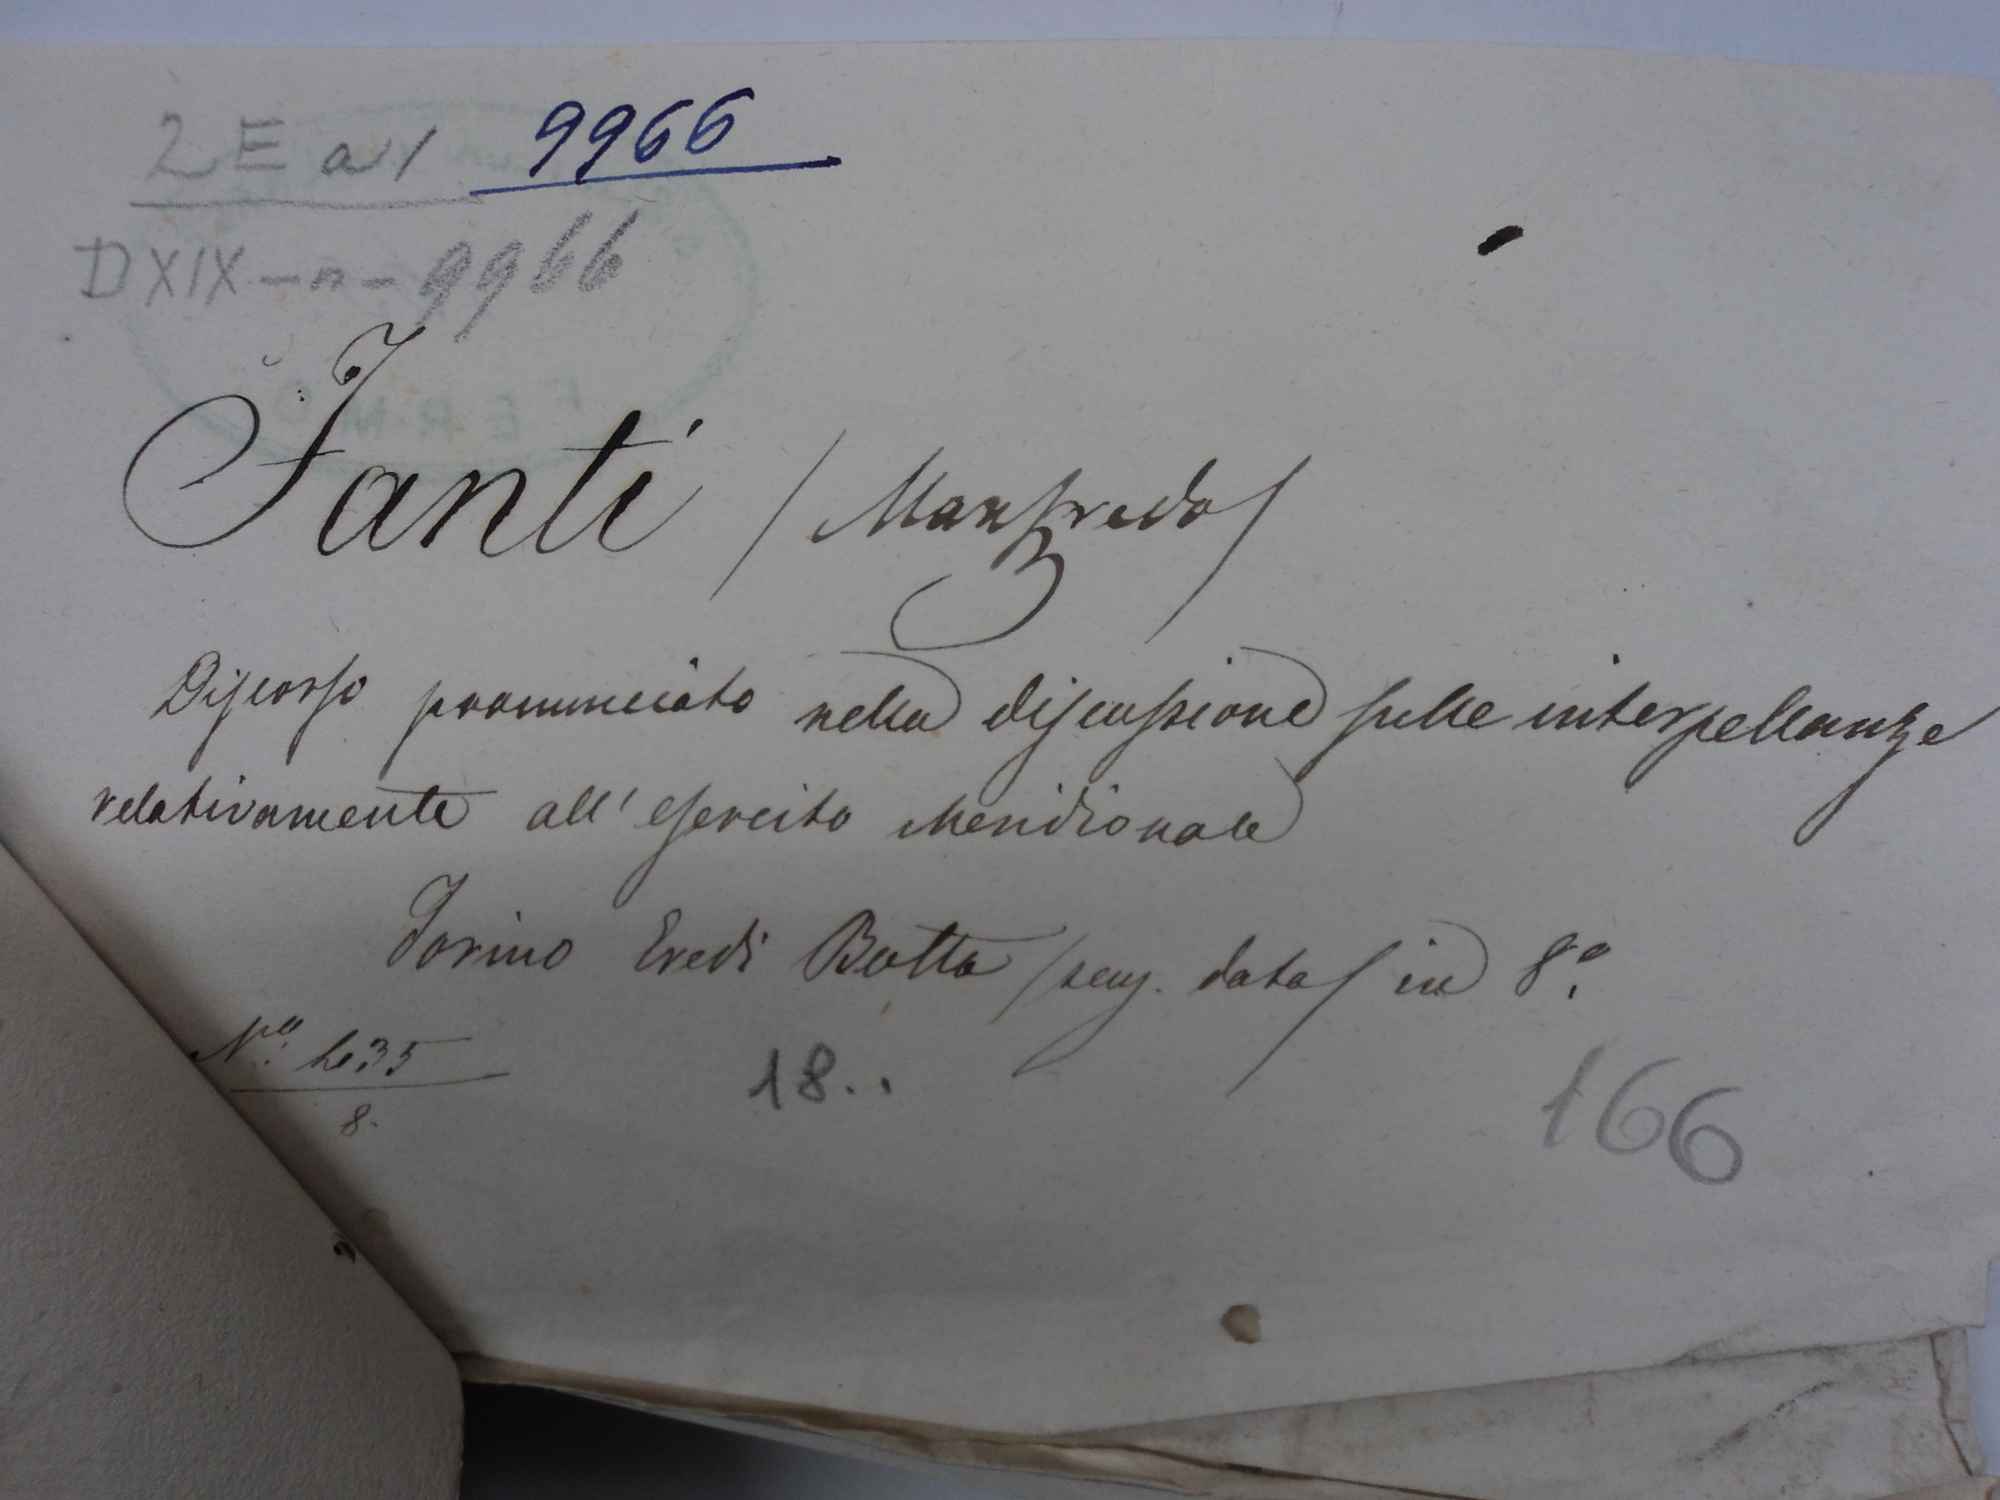 2 E a 1 9966
D XIX - n - 9966
FERMO
Fanti / Manfredo /
Discorso pronunciato nella discussione sulle interpellanze
relativamente all' esercito Meridionale
Torino Eredi Botta / senz. data / in 8.º
Nº. 635
8.
18..
166